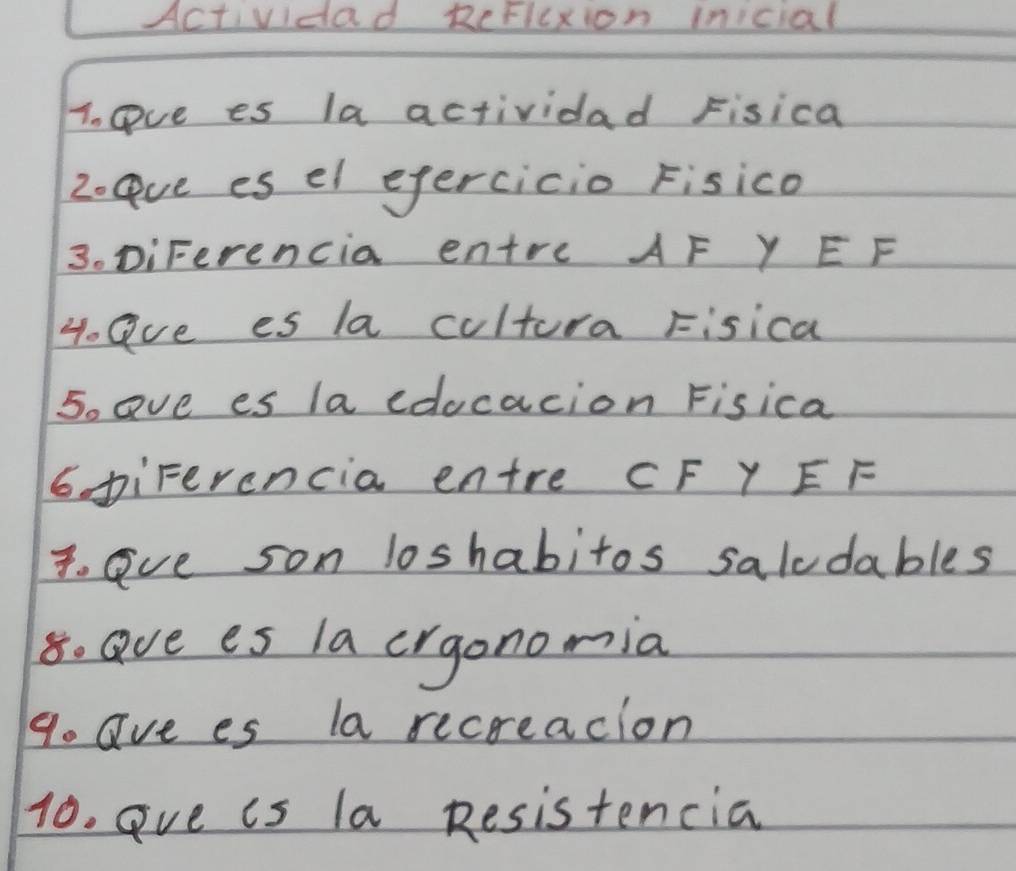 Actividad Reflexion inicial
1. Que es la actividad Fisica
2. Que es el ejercicio Fisico
3. Diferencia entre AF Y EF
4. Que es la cultura Fisica
5. Que es la educacion Fisica
6. Diferencia entre CF Y EF
7. Que son los habitos saludables
8. Que es la ergonomia
9. Que es la recreacion
10. Que es la Resistencia